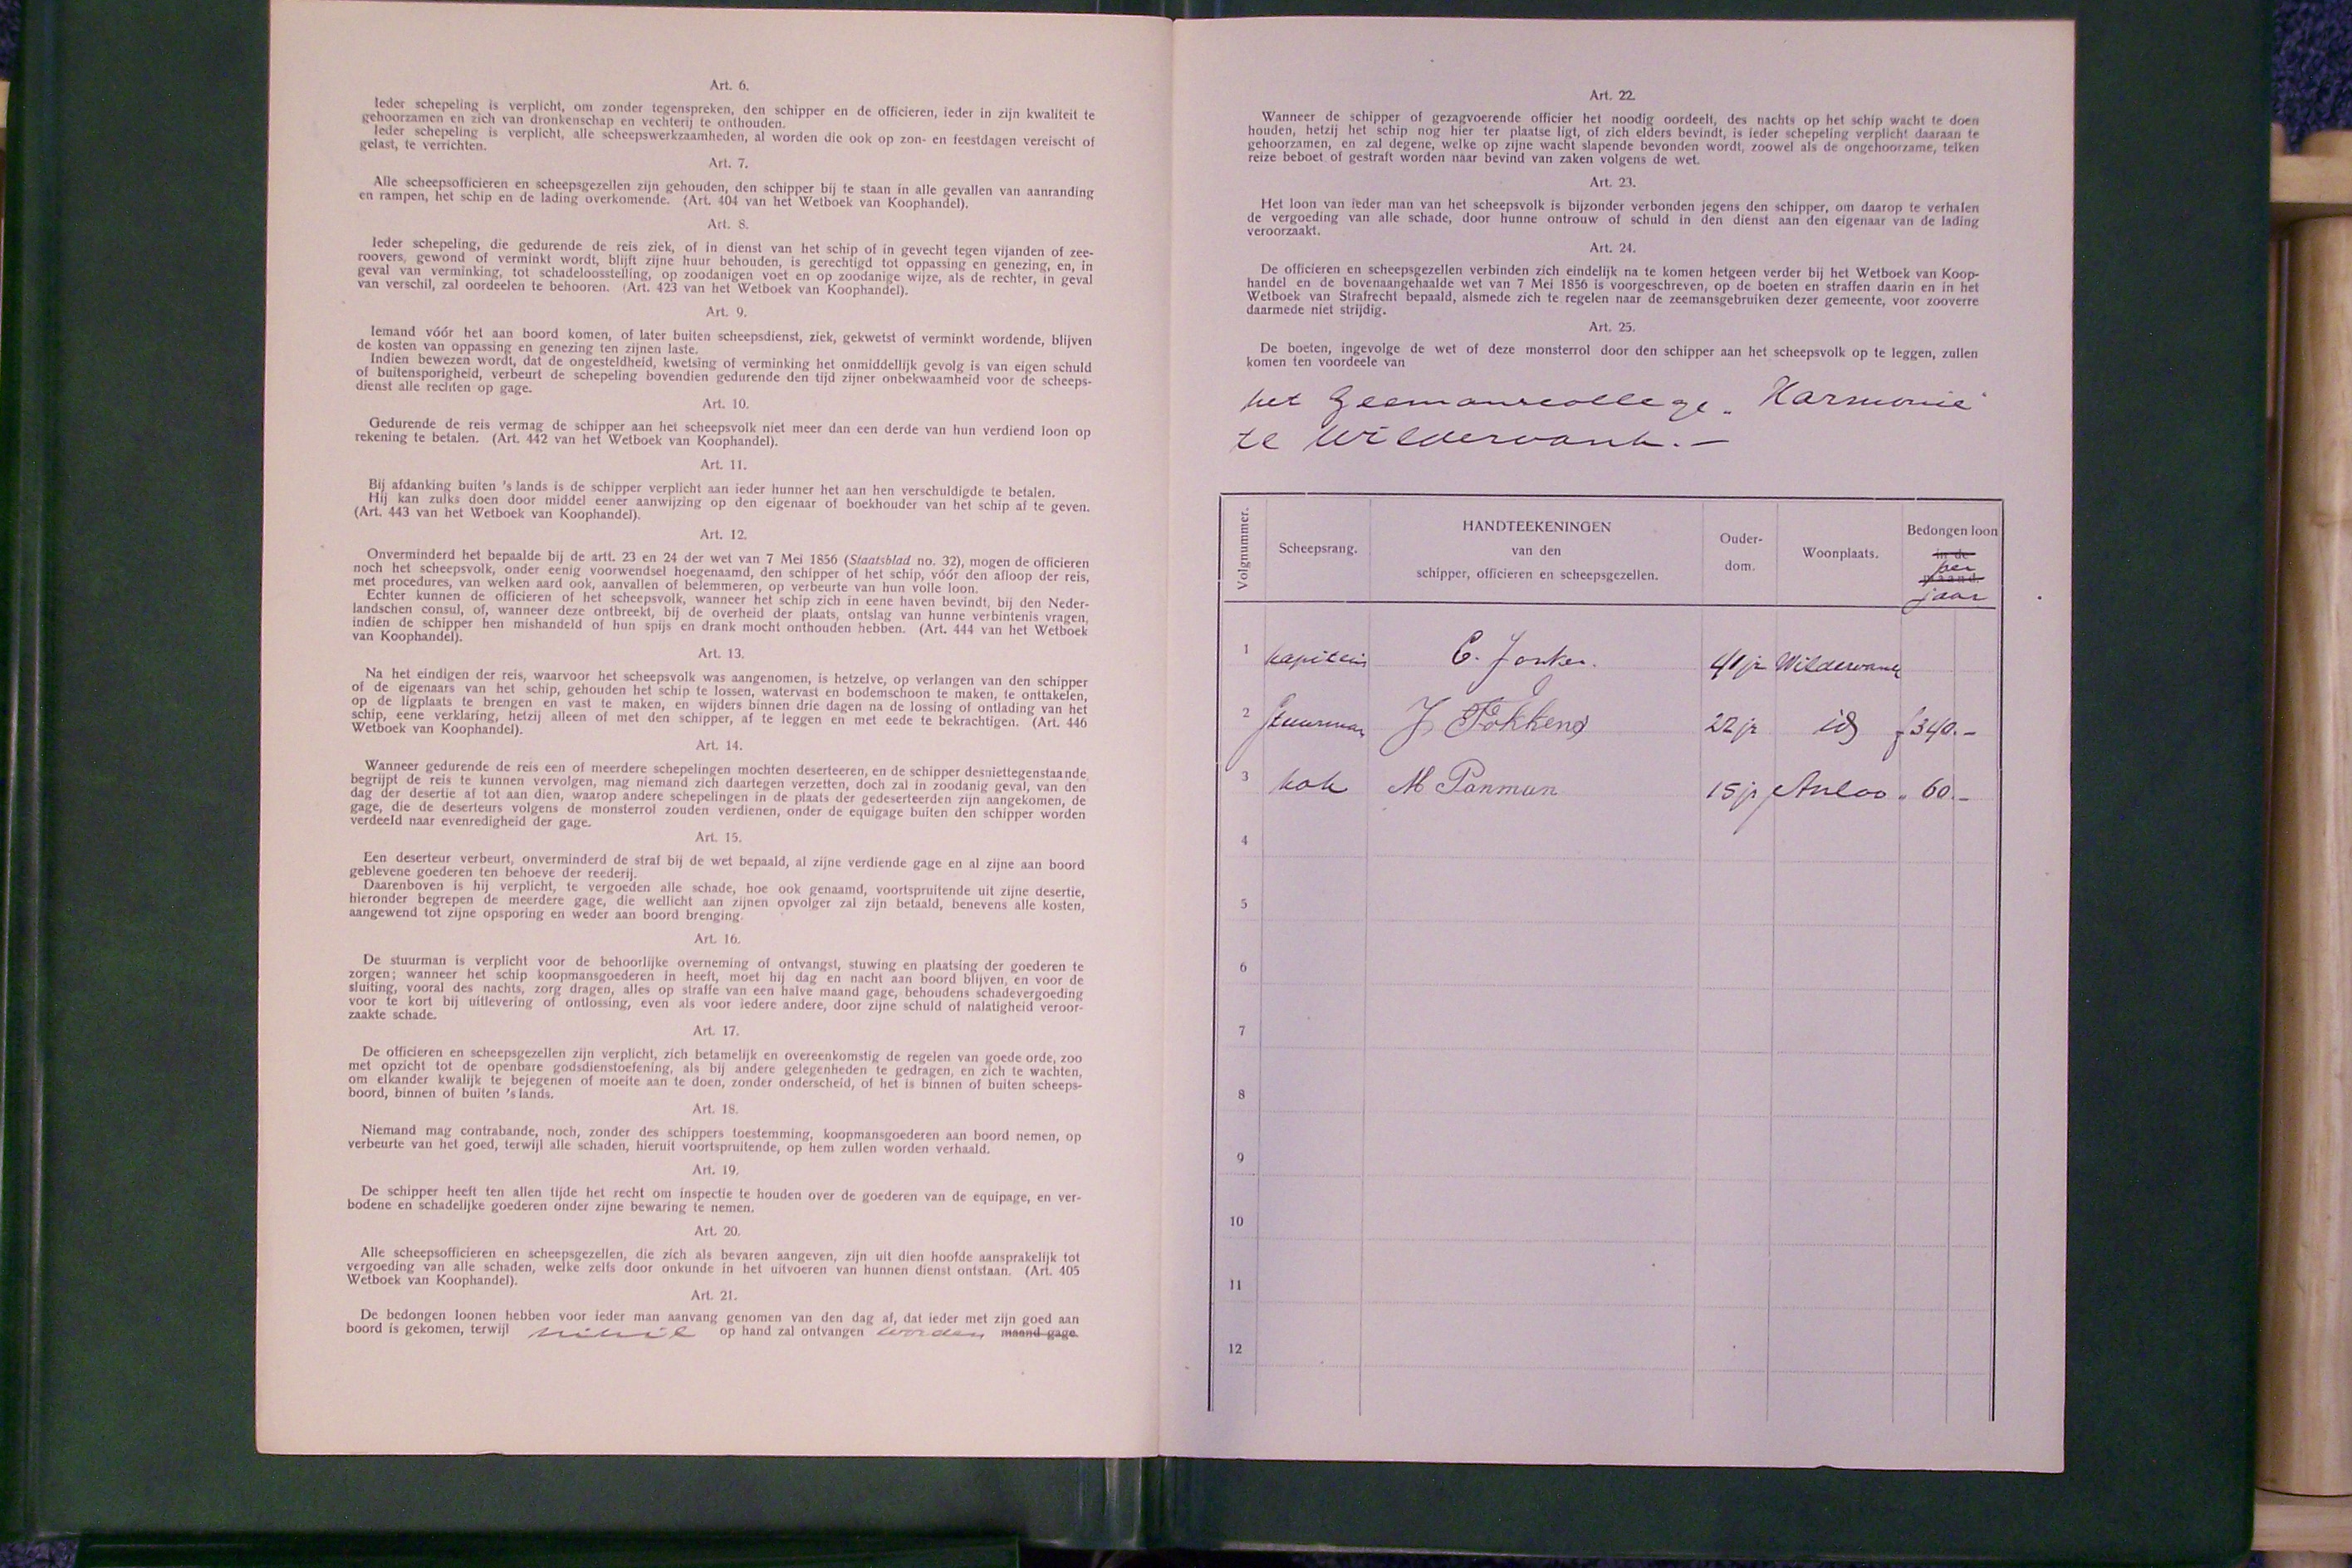 Art. 6.
Ieder schepeling is verplicht, om zonder tegenspreken, den schipper en de officieren, ieder in zijn kwaliteit te
gehoorzamen en zich van dronkenschap en vechterij te onthouden.
Ieder schepeling is verplicht, alle scheepswerkzaamheden, al worden die ook op zon- en feestdagen vereischt of
gelast, te verrichten.
Art. 7.
Alle scheepsofficieren en scheepsgezellen zijn gehouden, den schipper bij te staan in alle gevallen van aanranding
en rampen, het schip en de lading overkomende. (Art. 404 van het Wetboek van Koophandel).
Art. 8.
Ieder schepeling, die gedurende de reis ziek, of in dienst van het schip of in gevecht tegen vijanden of zee-
roovers, gewond of verminkt wordt, blijft zijne huur behouden, is gerechtigd tot oppassing en genezing, en, in
geval van verminking, tot schadeloosstelling, op zoodanigen voet en op zoodanige wijze, als de rechter, in geval
van verschil, zal oordeelen te behooren. (Art. 423 van het Wetboek van Koophandel).
Art. 9.
Iemand vóór het aan boord komen, of later buiten scheepsdienst, ziek, gekwetst of verminkt wordende, blijven
de kosten van oppassing en genezing ten zijnen laste.
Indien bewezen wordt, dat de ongesteldheid, kwetsing of verminking het onmiddellijk gevolg is van eigen schuld
of buitensporigheid, verbeurt de schepeling bovendien gedurende den tijd zijner onbekwaamheid voor de scheeps-
dienst alle rechten op gage.
Art. 10.
Gedurende de reis vermag de schipper aan het scheepsvolk niet meer dan een derde van hun verdiend loon op
rekening te betalen. (Art. 442 van het Wetboek van Koophandel).
Art. 11.
Bij afdanking buiten 's lands is de schipper verplicht aan ieder hunner het aan hen verschuldigde te betalen.
Hij kan zulks doen door middel eener aanwijzing op den eigenaar of boekhouder van het schip af te geven.
(Art. 443 van het Wetboek van Koophandel).
Art. 12.
Onverminderd het bepaalde bij de artt. 23 en 24 der wet van 7 Mei 1856 (Staatsblad no. 32), mogen de officieren
noch het scheepsvolk, onder eenig voorwendsel hoegenaamd, den schipper of het schip, vóór den afloop der reis,
met procedures, van welken aard ook, aanvallen of belemmeren, op verbeurte van hun volle loon.
Echter kunnen de officieren of het scheepsvolk, wanneer het schip zich in eene haven bevindt, bij den Neder-
landschen consul, of, wanneer deze ontbreekt, bij de overheid der plaats, ontslag van hunne verbintenis vragen,
indien de schipper hen mishandeld of hun spijs en drank mocht onthouden hebben. (Art. 444 van het Wetboek
van Koophandel).
Art. 13.
Na het eindigen der reis, waarvoor het scheepsvolk was aangenomen, is hetzelve, op verlangen van den schipper
of de eigenaars van het schip, gehouden het schip te lossen, watervast en bodemschoon te maken, te onttakelen,
op de ligplaats te brengen en vast te maken, en wijders binnen drie dagen na de lossing of ontlading van het
schip, eene verklaring, hetzij alleen of met den schipper, af te leggen en met eede te bekrachtigen. (Art. 446
Wetboek van Koophandel).
Art. 14.
Wanneer gedurende de reis een of meerdere schepelingen mochten deserteeren, en de schipper desniettegenstaande
begrijpt de reis te kunnen vervolgen, mag niemand zich daartegen verzetten, doch zal in zoodanig geval, van den
dag der desertie af tot aan dien, waarop andere schepelingen in de plaats der gedeserteerden zijn aangekomen, de
gage, die de deserteurs volgens de monsterrol zouden verdienen, onder de equigage buiten den schipper worden
verdeeld naar evenredigheid der gage.
Art. 15.
Een deserteur verbeurt, onverminderd de straf bij de wet bepaald, al zijne verdiende gage en al zijne aan boord
geblevene goederen ten behoeve der reederij.
Daarenboven is hij verplicht, te vergoeden alle schade, hoe ook genaamd, voortspruitende uit zijne desertie,
hieronder begrepen de meerdere gage, die wellicht aan zijnen opvolger zal zijn betaald, benevens alle kosten,
aangewend tot zijne opsporing en weder aan boord brenging.
Art. 16.
De stuurman is verplicht voor de behoorlijke overneming of ontvangst, stuwing en plaatsing der goederen te
zorgen; wanneer het schip koopmansgoederen in heeft, moet hij dag en nacht aan boord blijven, en voor de
sluiting, vooral des nachts, zorg dragen, alles op straffe van een halve maand gage, behoudens schadevergoeding
voor te kort bij uitlevering of ontlossing, even als voor iedere andere, door zijne schuld of nalatigheid veroor-
zaakte schade.
Art. 17.
De officieren en scheepsgezellen zijn verplicht, zich betamelijk en overeenkomstig de regelen van goede orde, zoo
met opzicht tot de openbare godsdienstoefening, als bij andere gelegenheden te gedragen, en zich te wachten,
om elkander kwalijk te bejegenen of moeite aan te doen, zonder onderscheid, of het is binnen of buiten scheeps-
boord, binnen of buiten 's lands.
Art. 18.
Niemand mag contrabande, noch, zonder des schippers toestemming, koopmansgoederen aan boord nemen, op
verbeurte van het goed, terwijl alle schaden, hieruit voortspruitende, op hem zullen worden verhaald.
Art. 19.
De schipper heeft ten allen tijde het recht om inspectie te houden over de goederen van de equipage, en ver-
bodene en schadelijke goederen onder zijne bewaring te nemen.
Art. 20.
Alle scheepsofficieren en scheepsgezellen, die zich als bevaren aangeven, zijn uit dien hoofde aansprakelijk tot
vergoeding van alle schaden, welke zelfs door onkunde in het uitvoeren van hunnen dienst ontstaan. (Art. 405
Wetboek van Koophandel).
Art. 21.
De bedongen loonen hebben voor ieder man aanvang genomen van den dag af, dat ieder met zijn goed aan
boord is gekomen, terwijl nihil op hand zal ontvangen worden maand gage.
Art. 22.
Wanneer de schipper of gezagvoerende officier het noodig oordeelt, des nachts op het schip wacht te doen
houden, hetzij het schip nog hier ter plaatse ligt, of zich elders bevindt, is ieder schepeling verplicht daaraan te
gehoorzamen, en zal degene, welke op zijne wacht slapende bevonden wordt, zoowel als de ongehoorzame, telken
reize beboet of gestraft worden naar bevind van zaken volgens de wet.
Art. 23.
Het loon van ieder man van het scheepsvolk is bijzonder verbonden jegens den schipper, om daarop te verhalen
de vergoeding van alle schade, door hunne ontrouw of schuld in den dienst aan den eigenaar van de lading
veroorzaakt.
Art. 24.
De officieren en scheepsgezellen verbinden zich eindelijk na te komen hetgeen verder bij het Wetboek van Koop-
handel en de bovenaangehaalde wet van 7 Mei 1856 is voorgeschreven, op de boeten en straffen daarin en in het
Wetboek van Strafrecht bepaald, alsmede zich te regelen naar de zeemansgebruiken dezer gemeente, voor zooverre
daarmede niet strijdig.
Art. 25.
De boeten, ingevolge de wet of deze monsterrol door den schipper aan het scheepsvolk op te leggen, zullen
komen ten voordeele van
het Zeemanscollege „Harmonie"
te Wildervank. —
Volgnummer.
Scheepsrang.
HANDTEEKENINGEN
van den
schipper, officieren en scheepsgezellen.
Ouder-
dom.
Woonplaats.
Bedongen loon
in de
per
maand.
jaar
1 kapitein C. Jonker. 41 jr Wildervank
2 Stuurman J Fokkens 22 jr id f 340.-
3 kok M Panman 15 jr Anloo „ 60.-
4
5
6
7
8
9
10
11
12